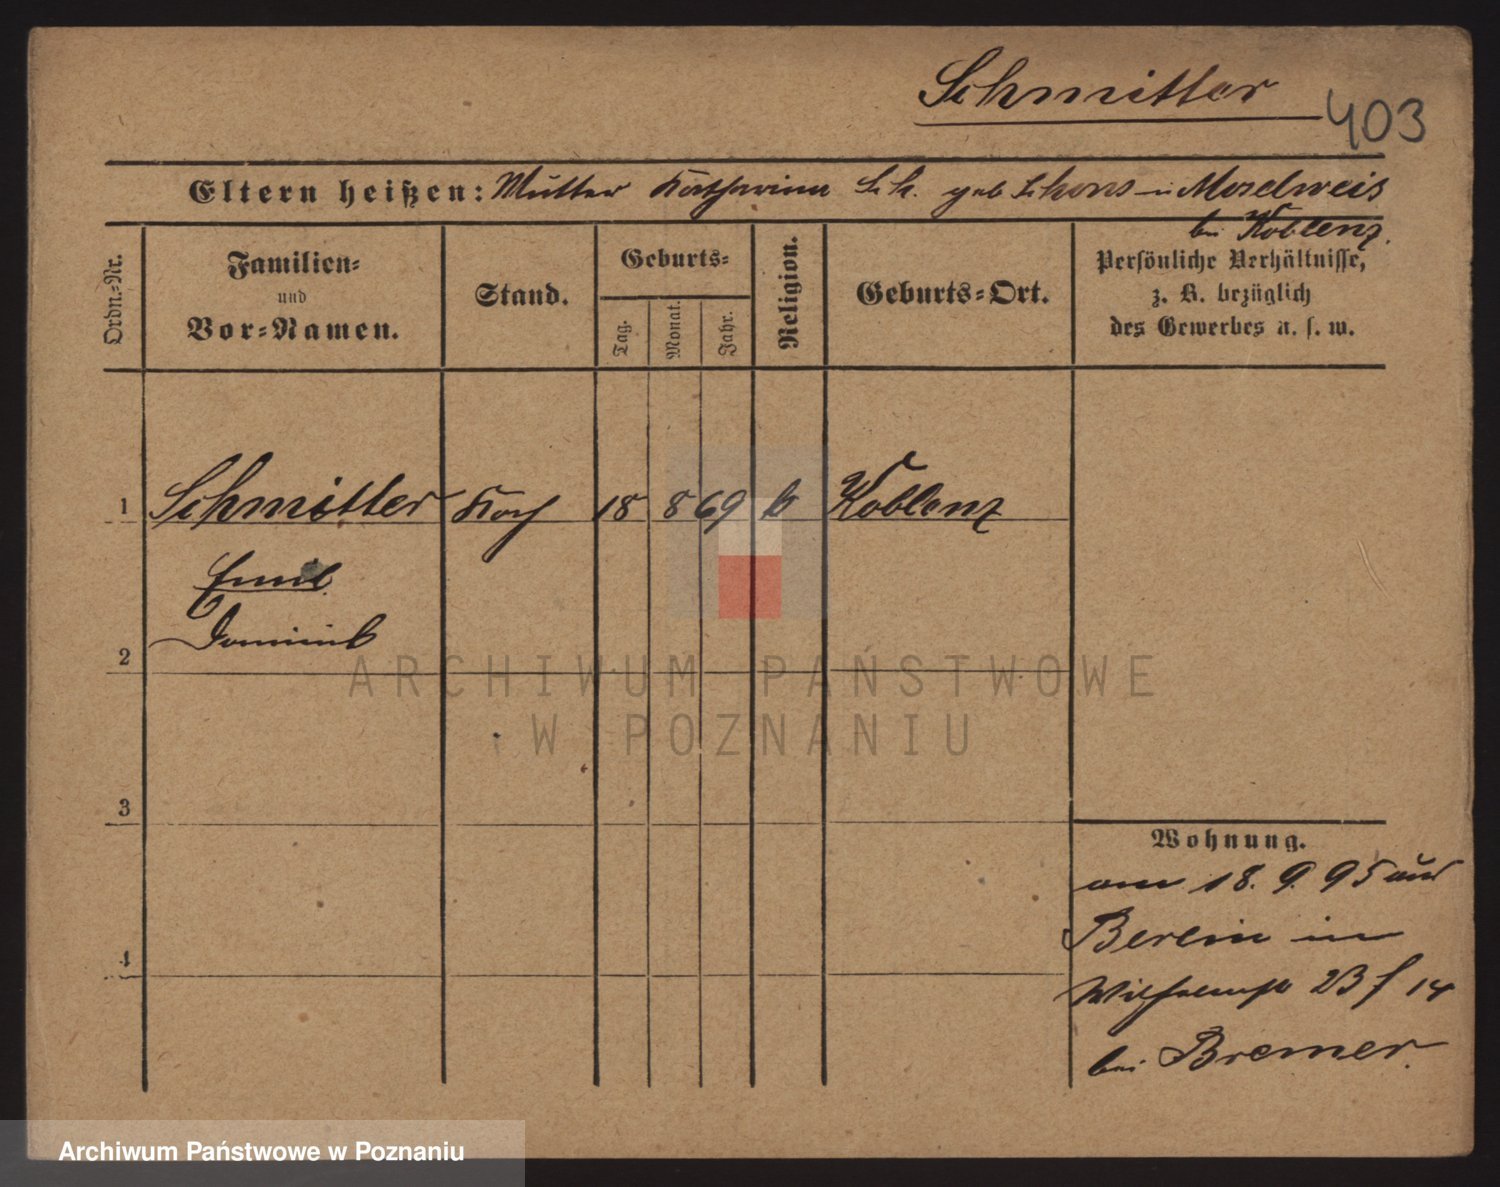 Schmitter
403
Eltern heißen: Mutter Katharina Sch. geb Schons in Moselweis
bei Koblenz.
Ordn.-Nr.
Familien-
und
Vor-Namen.
Stand.
Geburts-
Tag.
Monat.
Jahr.
Religion.
Geburts-Ort.
Persönliche Verhältnisse,
z. B. bezüglich
des Gewerbes u. s. w.
1 Schmitter Koch 18 8 69 k Koblenz
Emil
Dominik
2
3
4
Wohnung.
am 18. 9. 95 aus
Berlin in
Wilhelmstr 23 f 14
bei Bremer.
ARCHIWUM PAŃSTWOWE
W POZNANIU
Archiwum Państwowe w Poznaniu